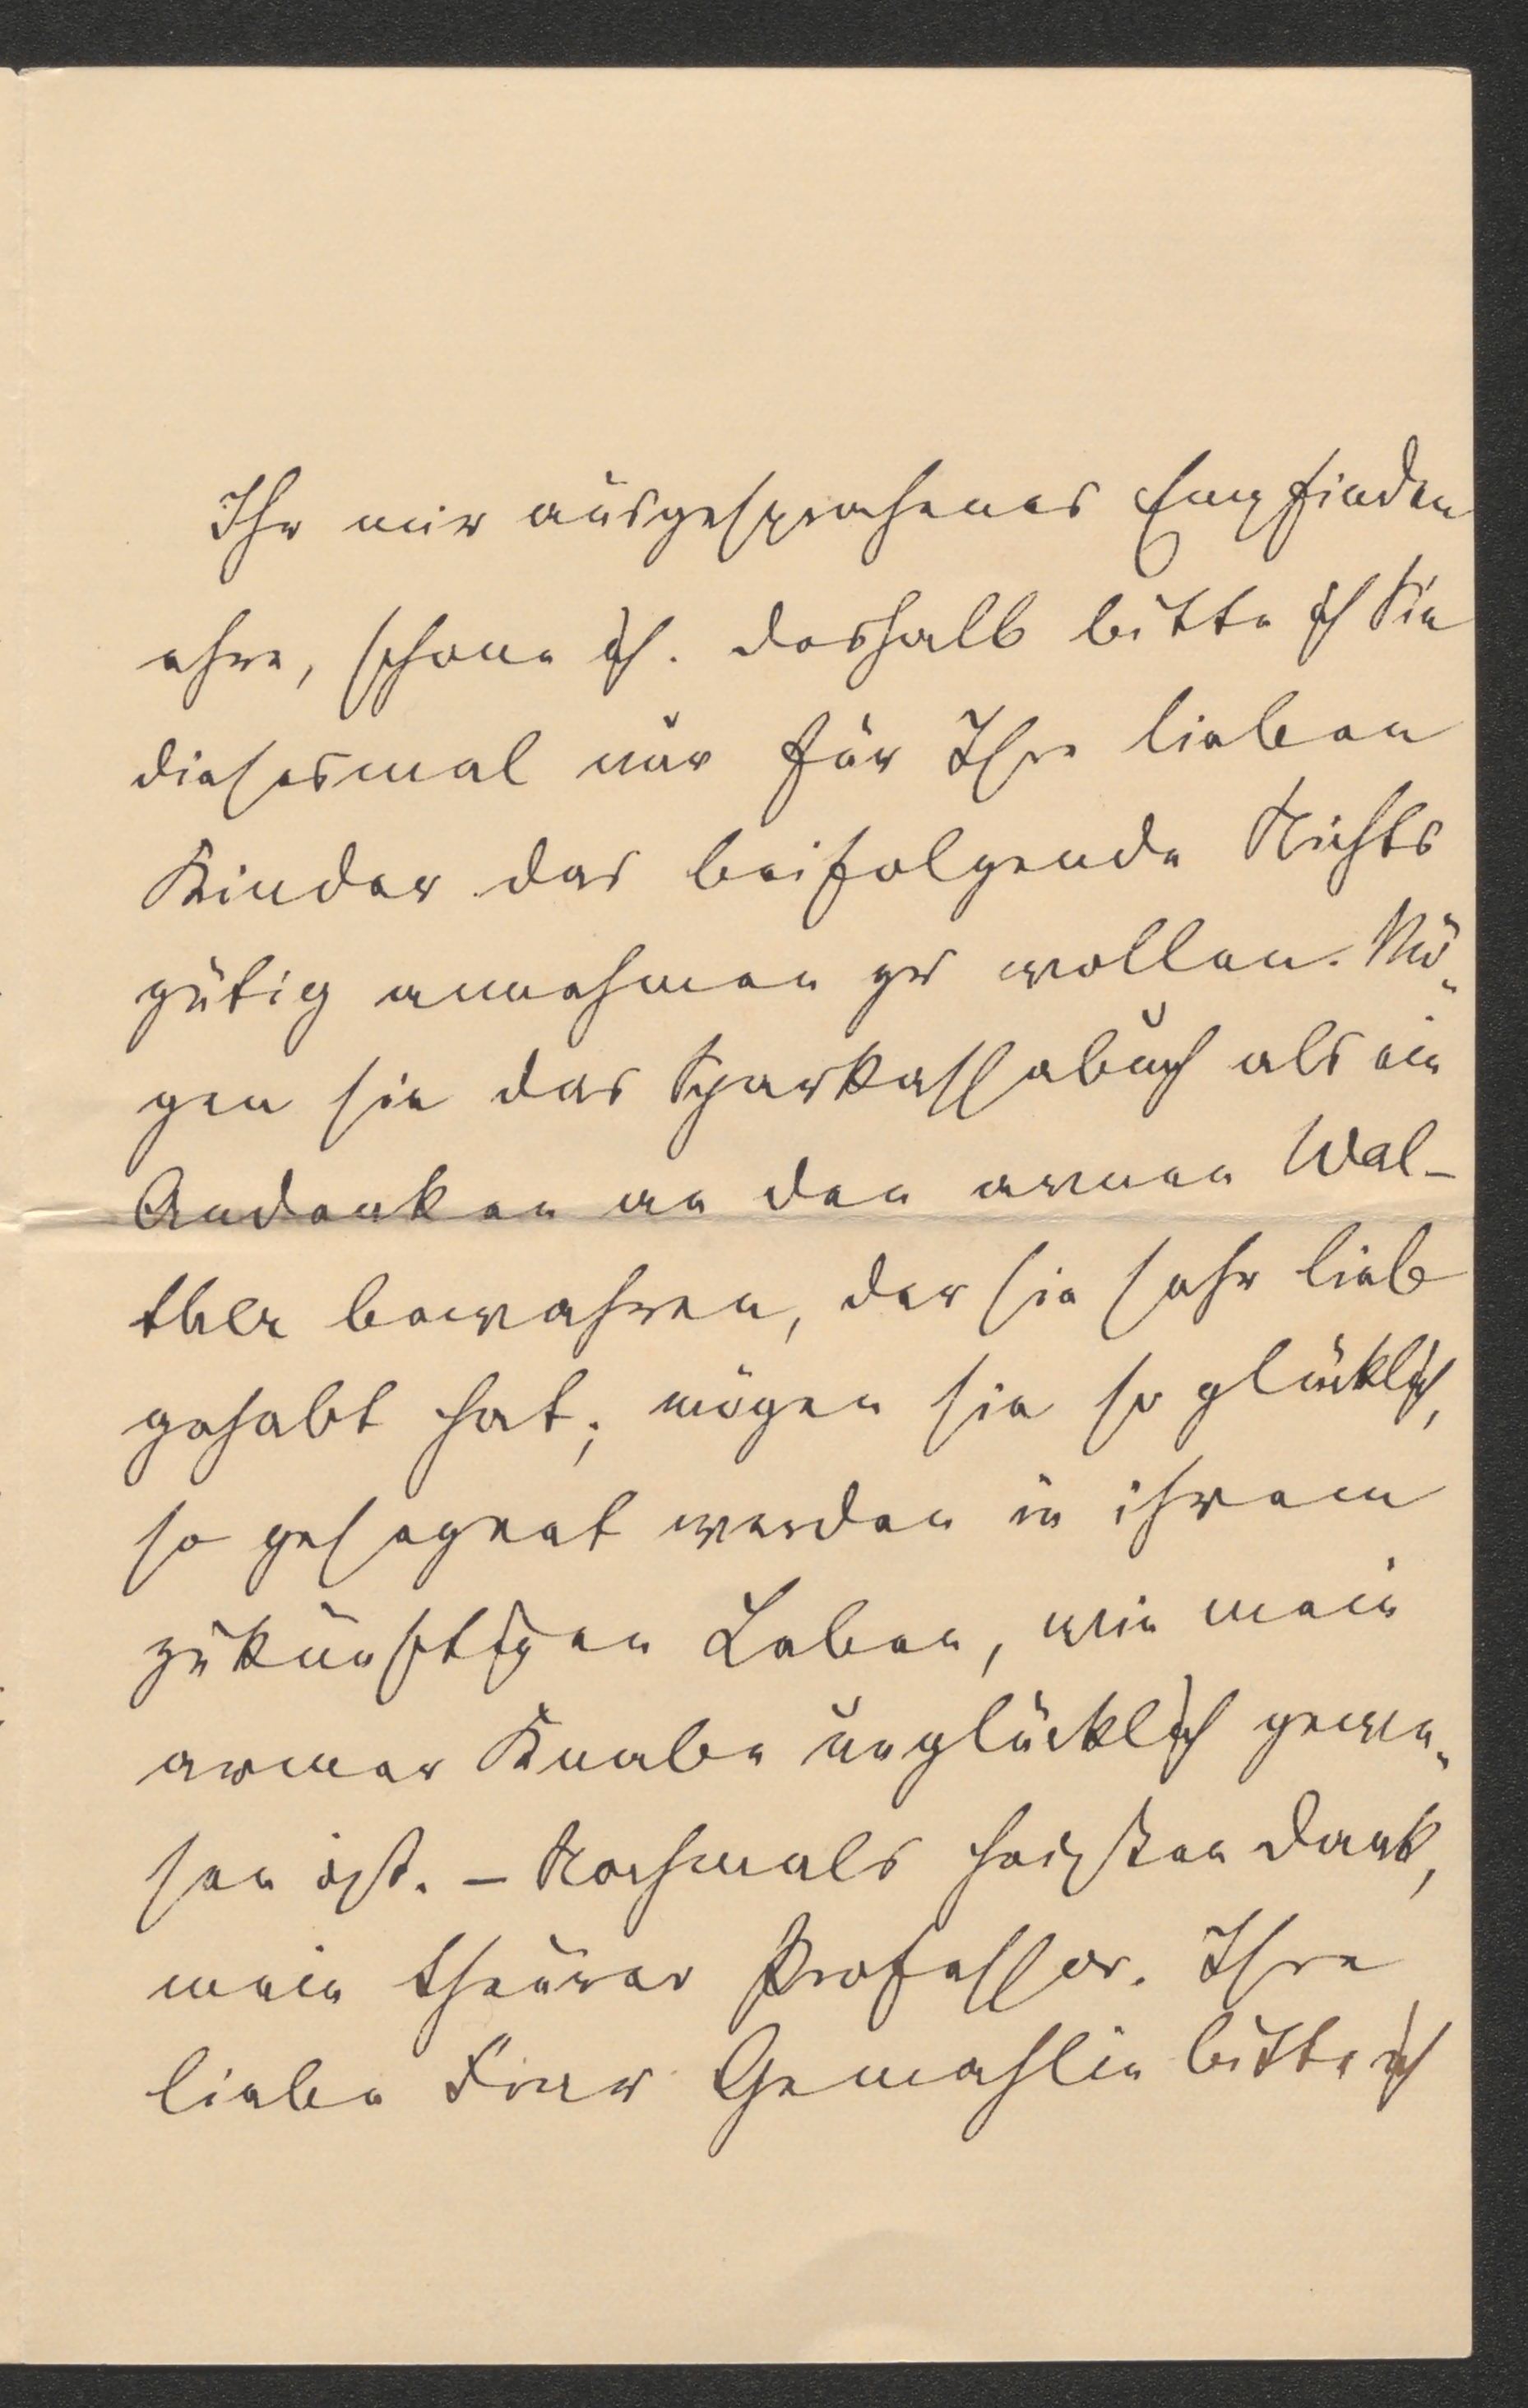 Ihr mir ausgesprochenes Empfinden
ehre, schone ich. Deshalb bitte ich Sie
diesesmal nur für Ihre lieben
Kinder das beifolgende Nichts
gütig annehmen zu wollen. Mö-
gen sie das Sparkassabuch als ein
Andenken an den armen Wal-
ther bewahren, der sie sehr lieb
gehabt hat; mögen sie so glücklich,
so gesegnet werden in ihrem
zukünftigen Leben, wie mein
armer Knabe unglücklich gewe-
sen ist. – Nochmals heißen Dank,
mein theurer Professor. Ihre
liebe Frau Gemahlin bitte ich